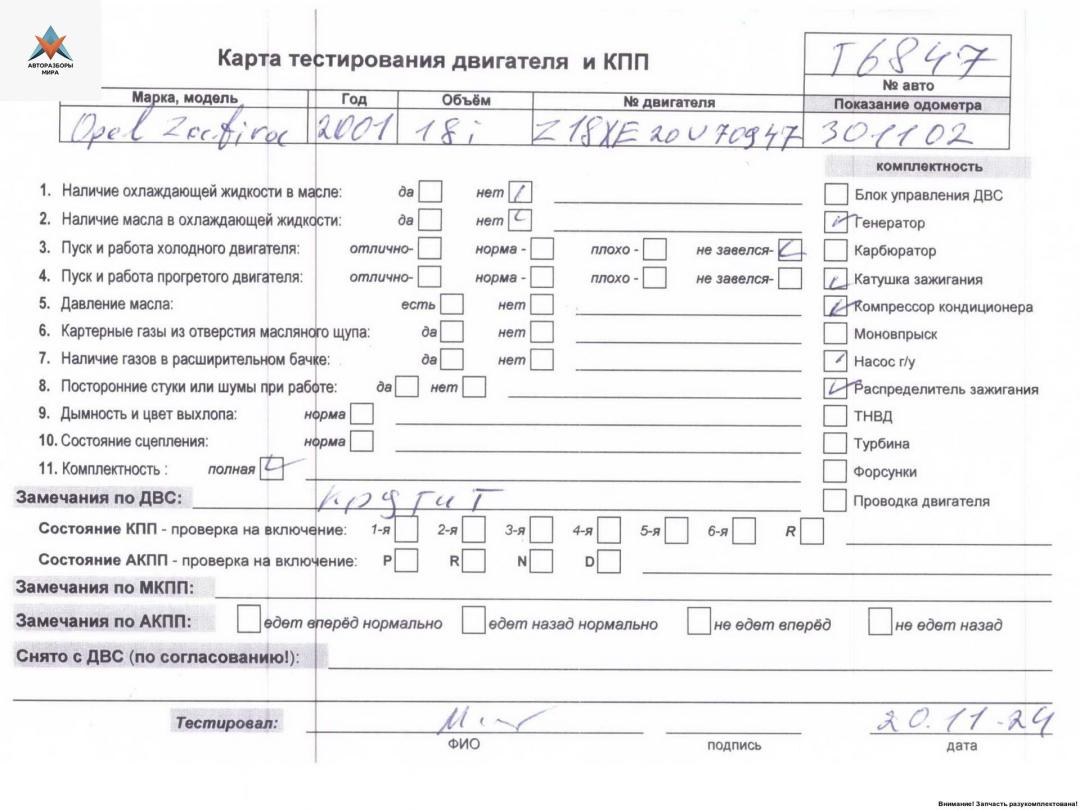 АВТОРАЗБОРЫ
МИРА
Карта тестирования двигателя и КПП
Т6847
№ авто
Марка, модель Год Объём № двигателя Показание одометра
Opel Zafira 2001 18i Z18XE20U70947 301102
комплектность
1. Наличие охлаждающей жидкости в масле: да нет
Блок управления ДВС
2. Наличие масла в охлаждающей жидкости: да нет
Генератор
3. Пуск и работа холодного двигателя: отлично- норма - плохо - не завелся-
Карбюратор
4. Пуск и работа прогретого двигателя: отлично- норма - плохо - не завелся-
Катушка зажигания
5. Давление масла: есть нет
Компрессор кондиционера
6. Картерные газы из отверстия масляного щупа: да нет
Моновпрыск
7. Наличие газов в расширительном бачке: да нет
Насос г/у
8. Посторонние стуки или шумы при работе: да нет
Распределитель зажигания
9. Дымность и цвет выхлопа: норма
ТНВД
10. Состояние сцепления: норма
Турбина
11. Комплектность : полная
Форсунки
Замечания по ДВС: крутит
Проводка двигателя
Состояние КПП - проверка на включение: 1-я 2-я 3-я 4-я 5-я 6-я R
Состояние АКПП - проверка на включение: P R N D
Замечания по МКПП:
Замечания по АКПП: едет вперёд нормально едет назад нормально не едет вперёд не едет назад
Снято с ДВС (по согласованию!):
Тестировал: 20.11.24
ФИО подпись дата
Внимание! Запчасть разукомплектована!